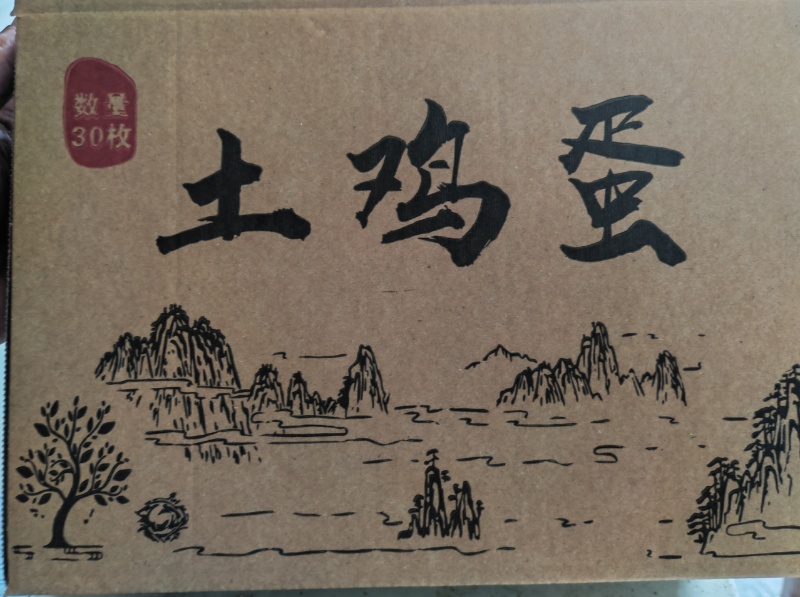 数量
30枚
土鸡蛋